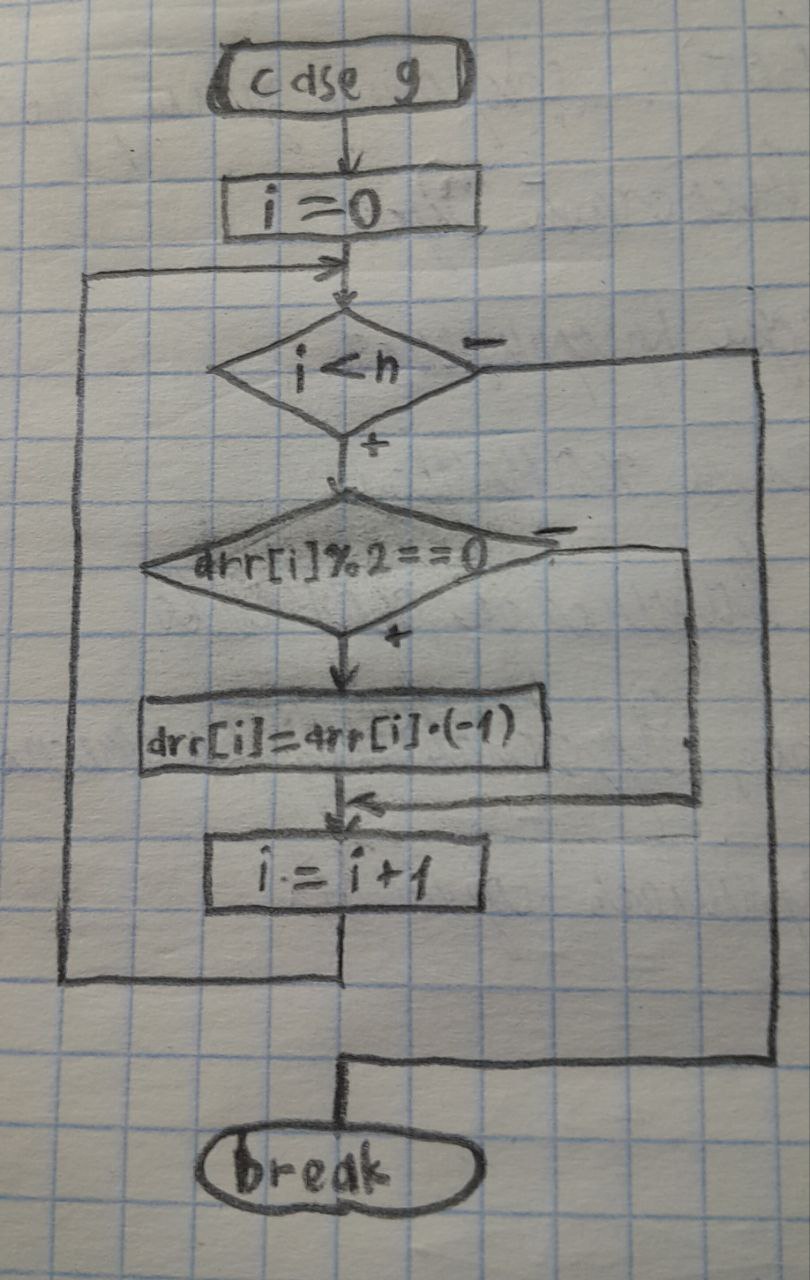 case 9
i = 0
i < n
−
+
arr[i] % 2 == 0
−
+
arr[i] = arr[i] · (-1)
i = i + 1
break